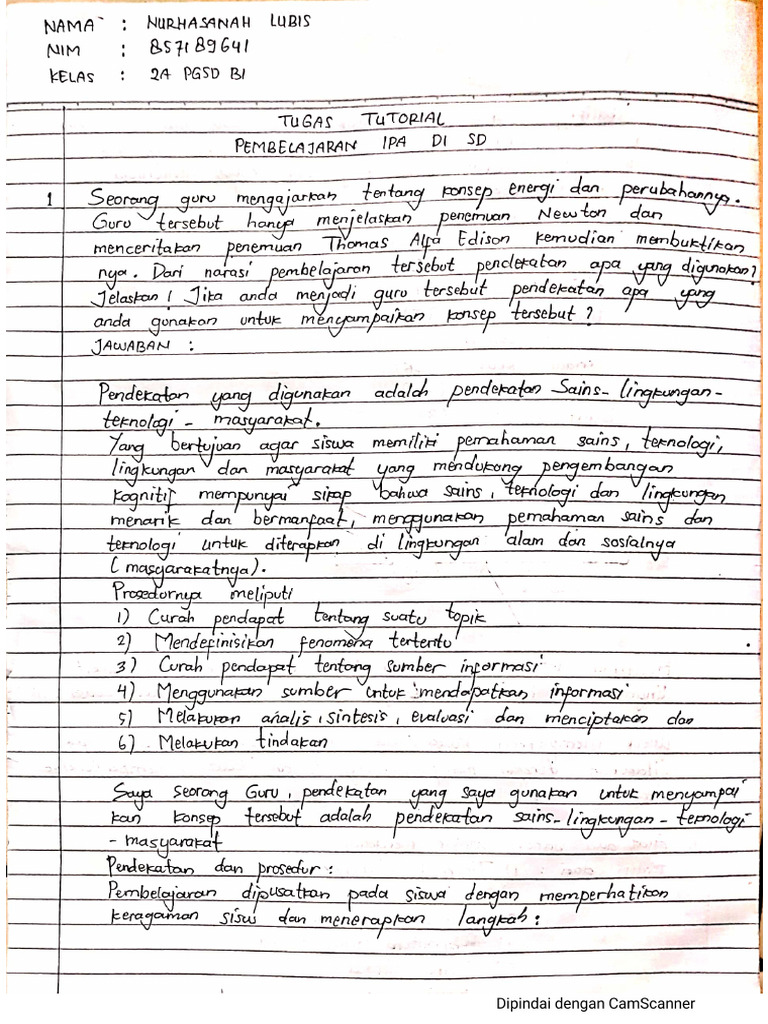 NAMA : NURHASANAH LUBIS
NIM : 857189641
KELAS : 2A PGSD BI
TUGAS TUTORIAL
PEMBELAJARAN IPA DI SD
1 Seorang guru mengajarkan tentang konsep energi dan perubahannya.
Guru tersebut hanya menjelaskan penemuan Newton dan
menceritakan penemuan Thomas Alpa Edison kemudian membuktikan
nya. Dari narasi pembelajaran tersebut pendekatan apa yang digunakan?
Jelaskan! Jika anda menjadi guru tersebut pendekatan apa yang
anda gunakan untuk menyampaikan konsep tersebut?
JAWABAN :
Pendekatan yang digunakan adalah pendekatan Sains-lingkungan-
teknologi - masyarakat.
Yang bertujuan agar siswa memiliki pemahaman sains, teknologi,
lingkungan dan masyarakat yang mendukung pengembangan
kognitif mempunyai sikap bahwa sains, teknologi dan lingkungan
menarik dan bermanfaat, menggunakan pemahaman sains dan
teknologi untuk diterapkan di lingkungan alam dan sosialnya
(masyarakatnya).
Prosedurnya meliputi
1) Curah pendapat tentang suatu topik
2) Mendefinisikan fenomena tertentu
3) Curah pendapat tentang sumber informasi
4) Menggunakan sumber untuk mendapatkan informasi
5) Melakukan analis, sintesis, evaluasi dan menciptakan dan
6) Melakukan tindakan
Saya seorang Guru, pendekatan yang saya gunakan untuk menyampai
kan konsep tersebut adalah pendekatan sains-lingkungan-teknologi
- masyarakat
Pendekatan dan prosedur :
Pembelajaran dipusatkan pada siswa dengan memperhatikan
keragaman sisws dan menerapkan langkah :
Dipindai dengan CamScanner